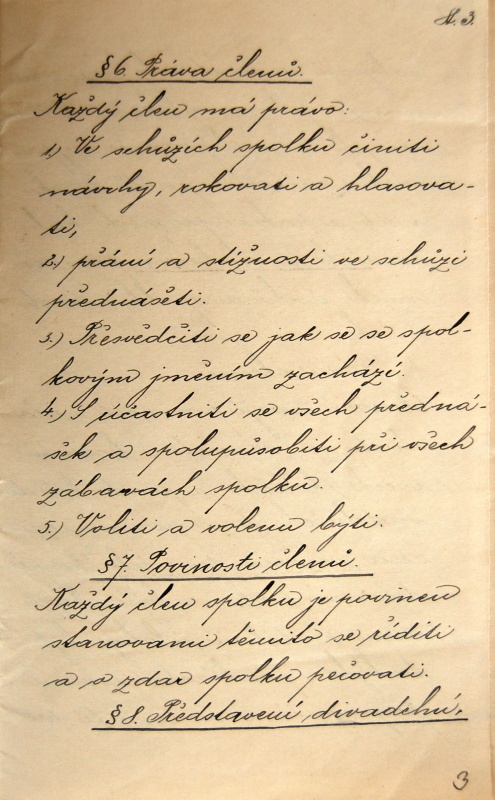 N. 3.
§ 6. Práva členů.
Každý člen má právo:
1.) Ve schůzích spolku činiti
návrhy, rokovati a hlasova-
ti,
2.) přání a stížnosti ve schůzi
přednášeti.
3.) Přesvědčiti se jak se se spol-
kovým jměním zachází.
4.) S účastniti se všech předná-
šek a spolupůsobiti při všech
zábavách spolku.
5.) Voliti a volenu býti.
§ 7. Povinosti členů.
Každý člen spolku je povinen
stanovami těmito se říditi
a o zdar spolku pečovati.
§ 8. Představení divadelní.
3